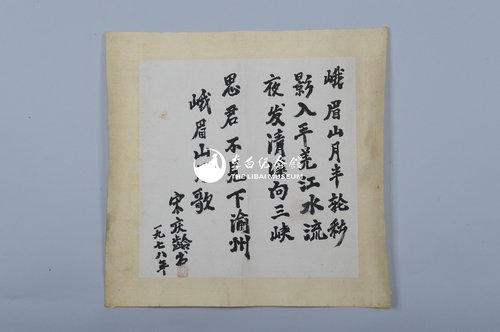 峨眉山月半轮秋
影入平羌江水流
夜发清溪向三峡
思君不见下渝州
峨眉山月歌
宋庆龄书
一九七八年
李白纪念馆
THE LIBAI MUSEUM